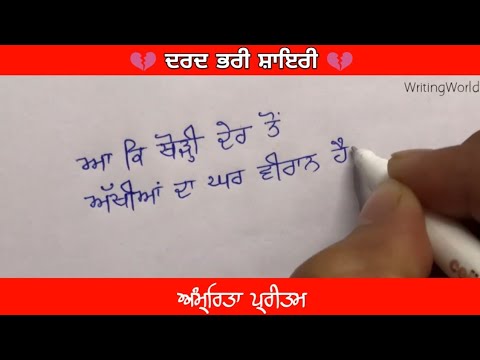 💔 ਦਰਦ ਭਰੀ ਸ਼ਾਇਰੀ 💔
WritingWorld
ਆ ਕਿ ਥੋੜ੍ਹੀ ਦੇਰ ਤੋਂ
ਅੱਖੀਆਂ ਦਾ ਘਰ ਵੀਰਾਨ ਹੈ
ਅੰਮ੍ਰਿਤਾ ਪ੍ਰੀਤਮ